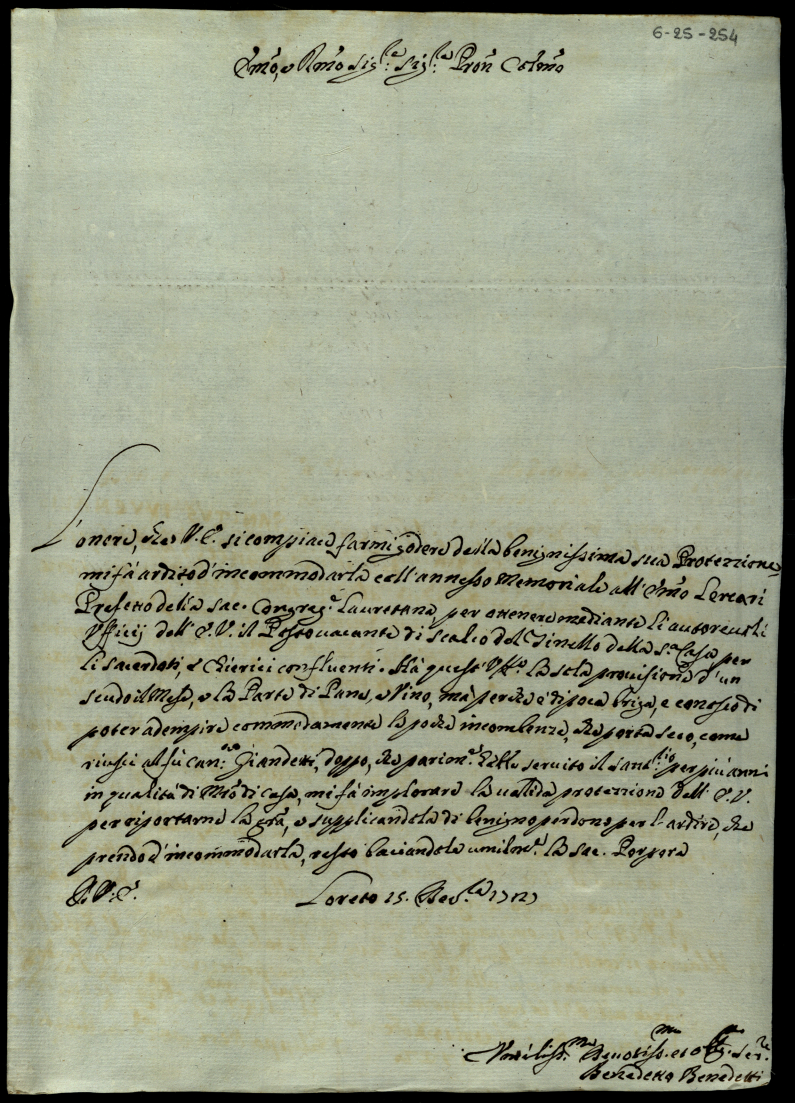 6-25-254
Emo, e Rmo Sig.re Sig.re Pron Colmo
L'onore, che V.E. si compiace farmi godere della benignissima sua Protezzione,
mi fà ardito d'incommodarla coll'annesso Memoriale all'Emo Lercari
Prefetto della Sac. Congreg.e Lauretana, per ottenere mediante li autorevoli
Ufficij dell'E.V. il Posto vacante di Scalco del Tinello della S.a Casa per
li Sacerdoti, e Chierici confluenti. Hà quest'Uff.o la sola provisione d'un
scudo il Mese, e la Parte di Pane, e Vino, mà perche è di poca briga, e conosco di
poter adempire commodamente la poca incombenza, che porta seco, come
riuscì al fù Can.co Giandetti, doppo, che parim.e ebbe servito il San.rio per più anni
in qualità di Mro di Casa, mi fà implorare la valida protezzione dell'E.V.
per riportarne la grã, e supplicandola di benigno perdono per l'ardire, che
prendo d'incommodarla, resto baciandole umilm.e la Sac. Porpora
Di V.E. Loreto 25.
Umiliss.mo Devotiss.mo et Obb.mo Ser.re
Benedetto Benedetti